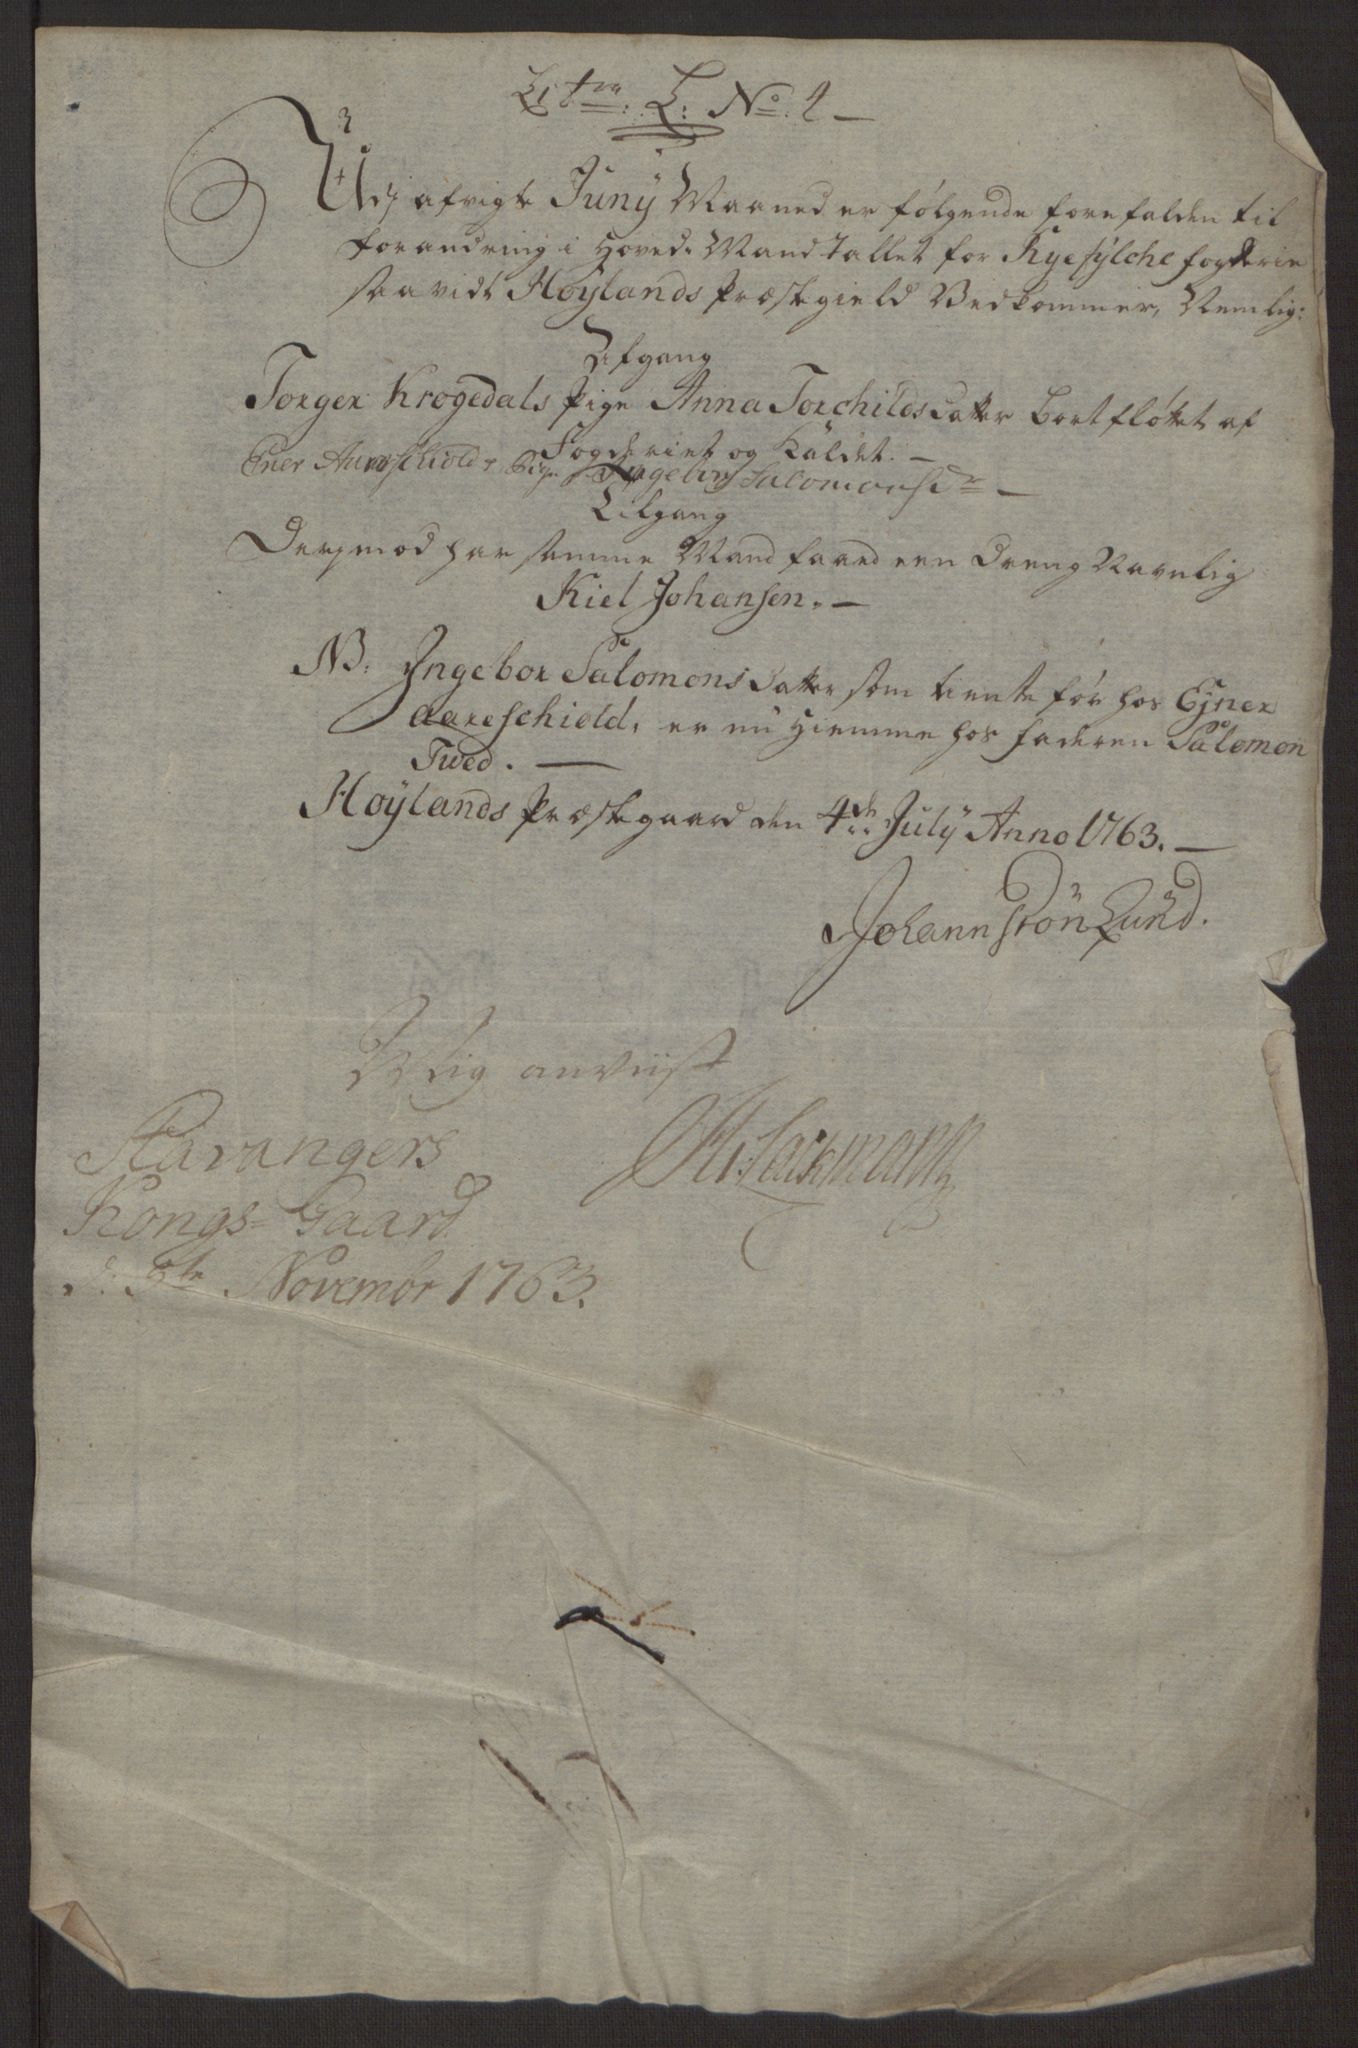 Litra: L: No. 1
Udj afvigte Juny Maaned er følgende forefalden til
forandring i Hoved-Mandtallet for Ryefylche fogderie
saavidt Høylands Præstegield Vedkommer, Nemlig:
Afgang
Torger Krogedals Pige Anna Torchilds datter bortfløttet af
Fogderiet og Kaldet. —
Ener Aureschiold Pige Ingebor Salomonsdr —
Tilgang
Derjmod har samme Mand faaed een Dreng Navnlig
Kiel Johansen. —
NB. Ingebor Salomons Datter som tiente før hos Ejner
Aareschiold, er nu Hiemme hos faderen Salomon
Tved. —
Høylands Præstegaard den 4de July Anno 1763. —
Johann Grönlund.
Mig anviist
Stavangers
Kongs-Gaard
d: 3te Novembr 1763.